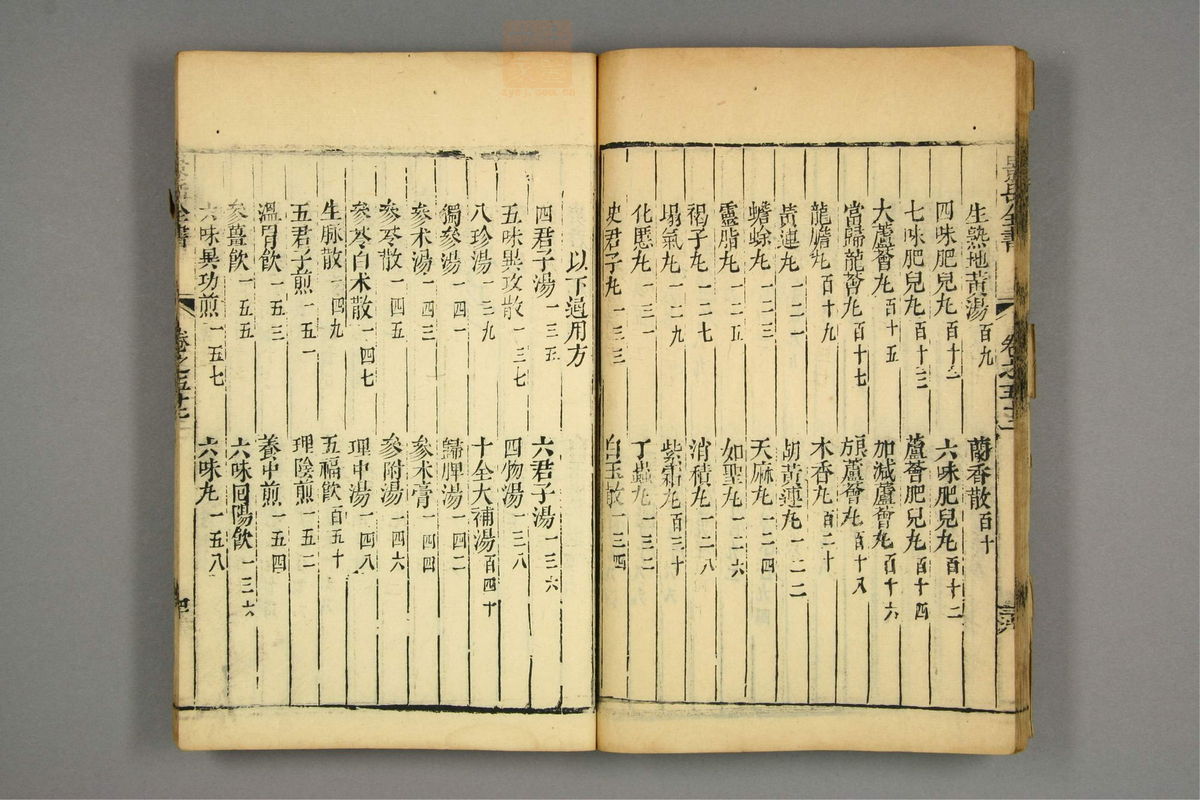 景岳全書 卷之五十三
生熟地黃湯百九 蘭香散百十
四味肥兒丸百十一 六味肥兒丸百十二
七味肥兒丸百十三 蘆薈肥兒丸百十四
大蘆薈丸百十五 加減蘆薈丸百十六
當歸龍薈丸百十七 蘆薈丸百十八
龍膽丸百十九 木香丸百二十
黃連丸一二一 胡黃連丸一二二
蟾蜍丸一二三 天麻丸一二四
靈脂丸一二五 如聖丸一二六
褐子丸一二七 消積丸一二八
塌氣丸一二九 紫霜丸百三十
化䘌丸一三一 丁蟲丸一三二
史君子丸一三三 白玉散一三四
以下通用方
四君子湯一三五 六君子湯一三六
五味異攻散一三七 四物湯一三八
八珍湯一三九 十全大補湯百四十
獨參湯一四一 歸脾湯一四二
參朮湯一四三 參朮膏一四四
參苓散一四五 參附湯一四六
參苓白朮散一四七 理中湯一四八
生脉散一四九 五福飲百五十
五君子煎一五一 理陰煎一五二
溫胃飲一五三 養中煎一五四
參薑飲一五五 六味回陽飲一三六
六味異功煎一五七 六味丸一五八
全書